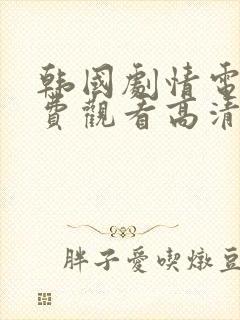 韩國劇情電
費觀看高清
胖子愛喫燉豆